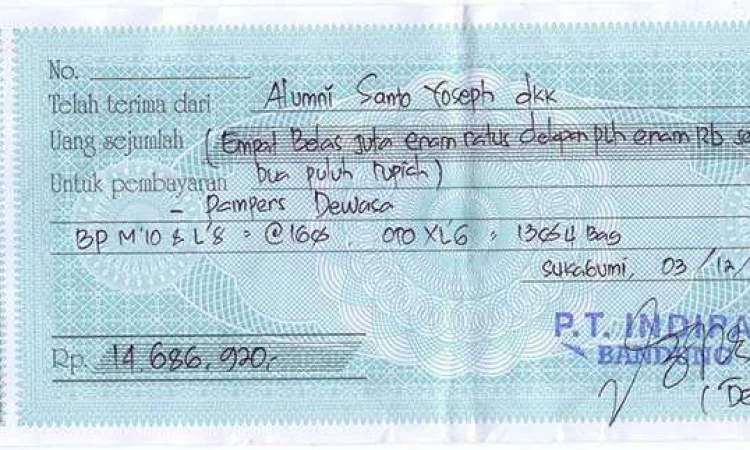 No.
Telah terima dari Alumni Santo Yoseph dkk
Uang sejumlah (Empat Belas juta enam ratus delapan plh enam Rb se
dua puluh rupiah)
Untuk pembayaran
- Pampers Dewasa
BP M'10 & L'8 = @ OTO XL'6 = Bag
Sukabumi, 03/12/
P.T. INDIRA
BANDUNG
Rp. 14.686.920,-
(De